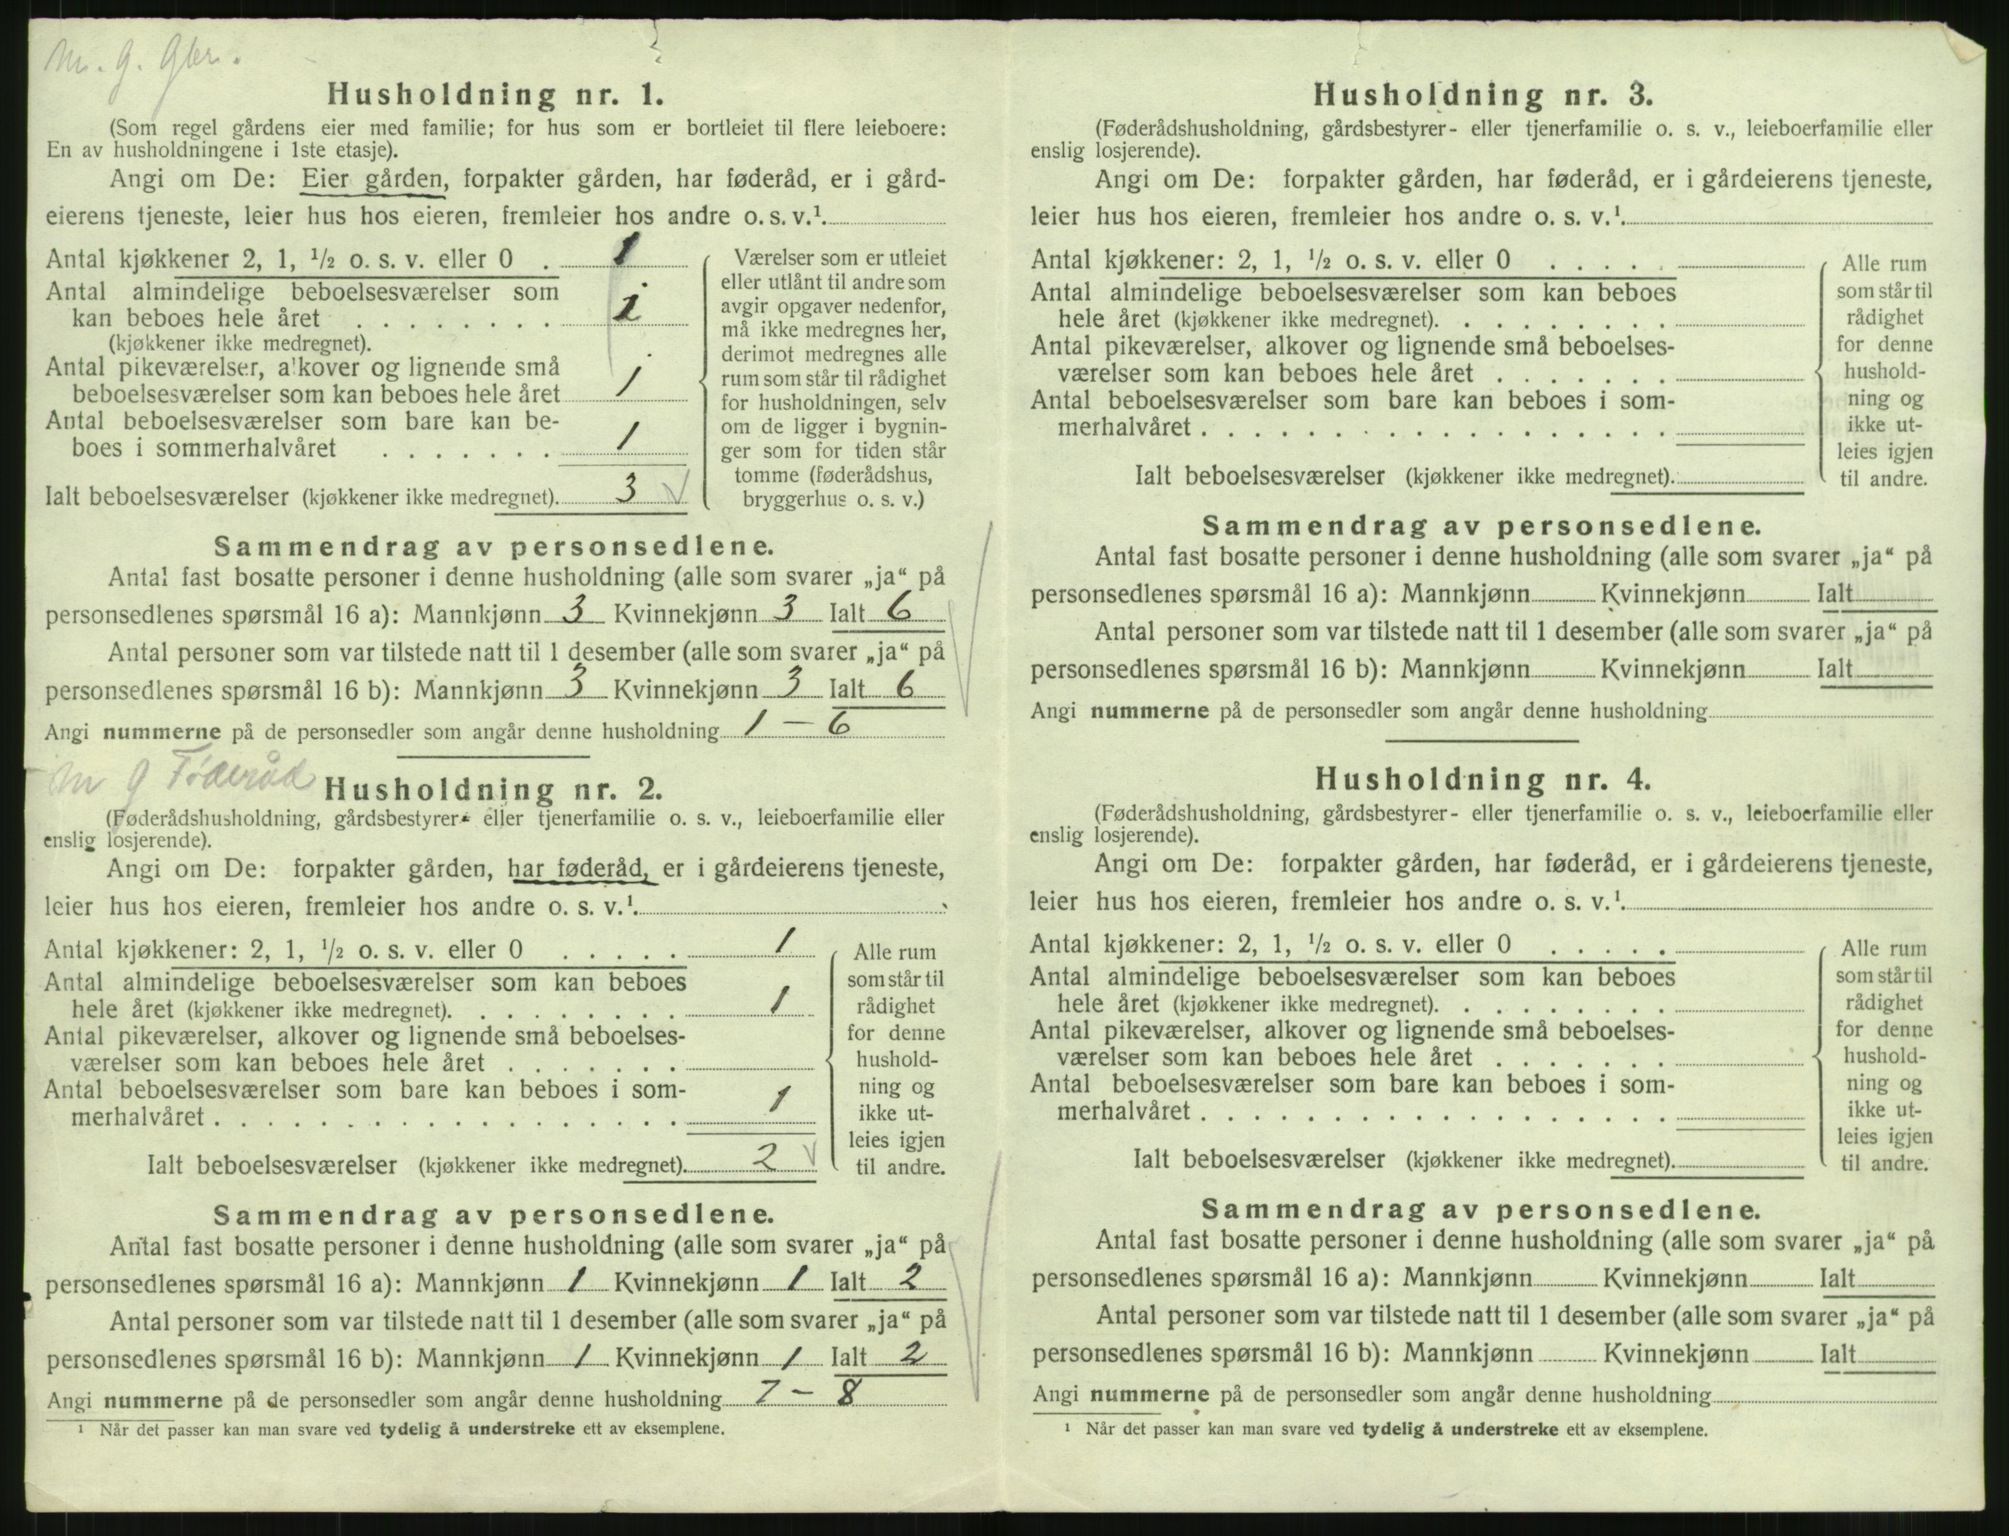 M. g. Gbr.
Husholdning nr. 1.
(Som regel gårdens eier med familie; for hus som er bortleiet til flere leieboere:
En av husholdningene i 1ste etasje).
Angi om De: Eier gården, forpakter gården, har føderåd, er i gård-
eierens tjeneste, leier hus hos eieren, fremleier hos andre o. s. v.¹
Antal kjøkkener 2, 1, ½ o. s. v. eller 0 . 1
Antal almindelige beboelsesværelser som
kan beboes hele året . . . . . . . . 1
(kjøkkener ikke medregnet).
Antal pikeværelser, alkover og lignende små
beboelsesværelser som kan beboes hele året 1
Antal beboelsesværelser som bare kan be-
boes i sommerhalvåret . . . . . . . 1
Ialt beboelsesværelser (kjøkkener ikke medregnet). 3 √
Værelser som er utleiet
eller utlånt til andre som
avgir opgaver nedenfor,
må ikke medregnes her,
derimot medregnes alle
rum som står til rådighet
for husholdningen, selv
om de ligger i bygnin-
ger som for tiden står
tomme (føderådshus,
bryggerhus o. s. v.)
Sammendrag av personsedlene.
Antal fast bosatte personer i denne husholdning (alle som svarer „ja“ på
personsedlenes spørsmål 16 a): Mannkjønn 3 Kvinnekjønn 3 Ialt 6
Antal personer som var tilstede natt til 1 desember (alle som svarer „ja“ på
personsedlenes spørsmål 16 b): Mannkjønn 3 Kvinnekjønn 3 Ialt 6
Angi nummerne på de personsedler som angår denne husholdning 1 – 6
M g Føderåd
Husholdning nr. 2.
(Føderådshusholdning, gårdsbestyrer- eller tjenerfamilie o. s. v., leieboerfamilie eller
enslig losjerende).
Angi om De: forpakter gården, har føderåd, er i gårdeierens tjeneste,
leier hus hos eieren, fremleier hos andre o. s. v.¹
Antal kjøkkener: 2, 1, ½ o. s. v. eller 0 . . . . . 1
Antal almindelige beboelsesværelser som kan beboes
hele året (kjøkkener ikke medregnet). . . . . . . . . 1
Antal pikeværelser, alkover og lignende små beboelses-
værelser som kan beboes hele året . . . . . . .
Antal beboelsesværelser som bare kan beboes i som-
merhalvåret . . . . . . . . . . . . . . . . . . 1
Ialt beboelsesværelser (kjøkkener ikke medregnet). 2 √
Alle rum
som står til
rådighet
for denne
hushold-
ning og
ikke ut-
leies igjen
til andre.
Sammendrag av personsedlene.
Antal fast bosatte personer i denne husholdning (alle som svarer „ja“ på
personsedlenes spørsmål 16 a): Mannkjønn 1 Kvinnekjønn 1 Ialt 2
Antal personer som var tilstede natt til 1 desember (alle som svarer „ja“ på
personsedlenes spørsmål 16 b): Mannkjønn 1 Kvinnekjønn 1 Ialt 2
Angi nummerne på de personsedler som angår denne husholdning 7 – 8
¹ Når det passer kan man svare ved tydelig å understreke ett av eksemplene.
Husholdning nr. 3.
(Føderådshusholdning, gårdsbestyrer- eller tjenerfamilie o. s. v., leieboerfamilie eller
enslig losjerende).
Angi om De: forpakter gården, har føderåd, er i gårdeierens tjeneste,
leier hus hos eieren, fremleier hos andre o. s. v.¹
Antal kjøkkener: 2, 1, ½ o. s. v. eller 0 . . . . .
Antal almindelige beboelsesværelser som kan beboes
hele året (kjøkkener ikke medregnet). . . . . . . . .
Antal pikeværelser, alkover og lignende små beboelses-
værelser som kan beboes hele året . . . . . . .
Antal beboelsesværelser som bare kan beboes i som-
merhalvåret . . . . . . . . . . . . . . . . . .
Ialt beboelsesværelser (kjøkkener ikke medregnet).
Alle rum
som står til
rådighet
for denne
hushold-
ning og
ikke ut-
leies igjen
til andre.
Sammendrag av personsedlene.
Antal fast bosatte personer i denne husholdning (alle som svarer „ja“ på
personsedlenes spørsmål 16 a): Mannkjønn Kvinnekjønn Ialt
Antal personer som var tilstede natt til 1 desember (alle som svarer „ja“ på
personsedlenes spørsmål 16 b): Mannkjønn Kvinnekjønn Ialt
Angi nummerne på de personsedler som angår denne husholdning
Husholdning nr. 4.
(Føderådshusholdning, gårdsbestyrer- eller tjenerfamilie o. s. v., leieboerfamilie eller
enslig losjerende).
Angi om De: forpakter gården, har føderåd, er i gårdeierens tjeneste,
leier hus hos eieren, fremleier hos andre o. s. v.¹
Antal kjøkkener: 2, 1, ½ o. s. v. eller 0 . . . . .
Antal almindelige beboelsesværelser som kan beboes
hele året (kjøkkener ikke medregnet). . . . . . . . .
Antal pikeværelser, alkover og lignende små beboelses-
værelser som kan beboes hele året . . . . . . .
Antal beboelsesværelser som bare kan beboes i som-
merhalvåret . . . . . . . . . . . . . . . . . .
Ialt beboelsesværelser (kjøkkener ikke medregnet).
Alle rum
som står til
rådighet
for denne
hushold-
ning og
ikke ut-
leies igjen
til andre.
Sammendrag av personsedlene.
Antal fast bosatte personer i denne husholdning (alle som svarer „ja“ på
personsedlenes spørsmål 16 a): Mannkjønn Kvinnekjønn Ialt
Antal personer som var tilstede natt til 1 desember (alle som svarer „ja“ på
personsedlenes spørsmål 16 b): Mannkjønn Kvinnekjønn Ialt
Angi nummerne på de personsedler som angår denne husholdning
¹ Når det passer kan man svare ved tydelig å understreke ett av eksemplene.